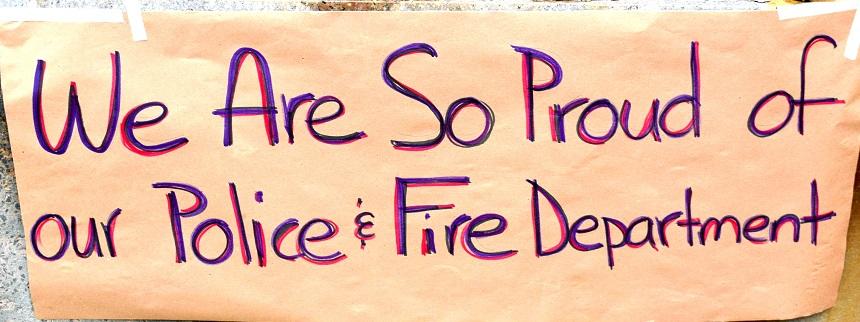 We Are So Proud of
our Police & Fire Department